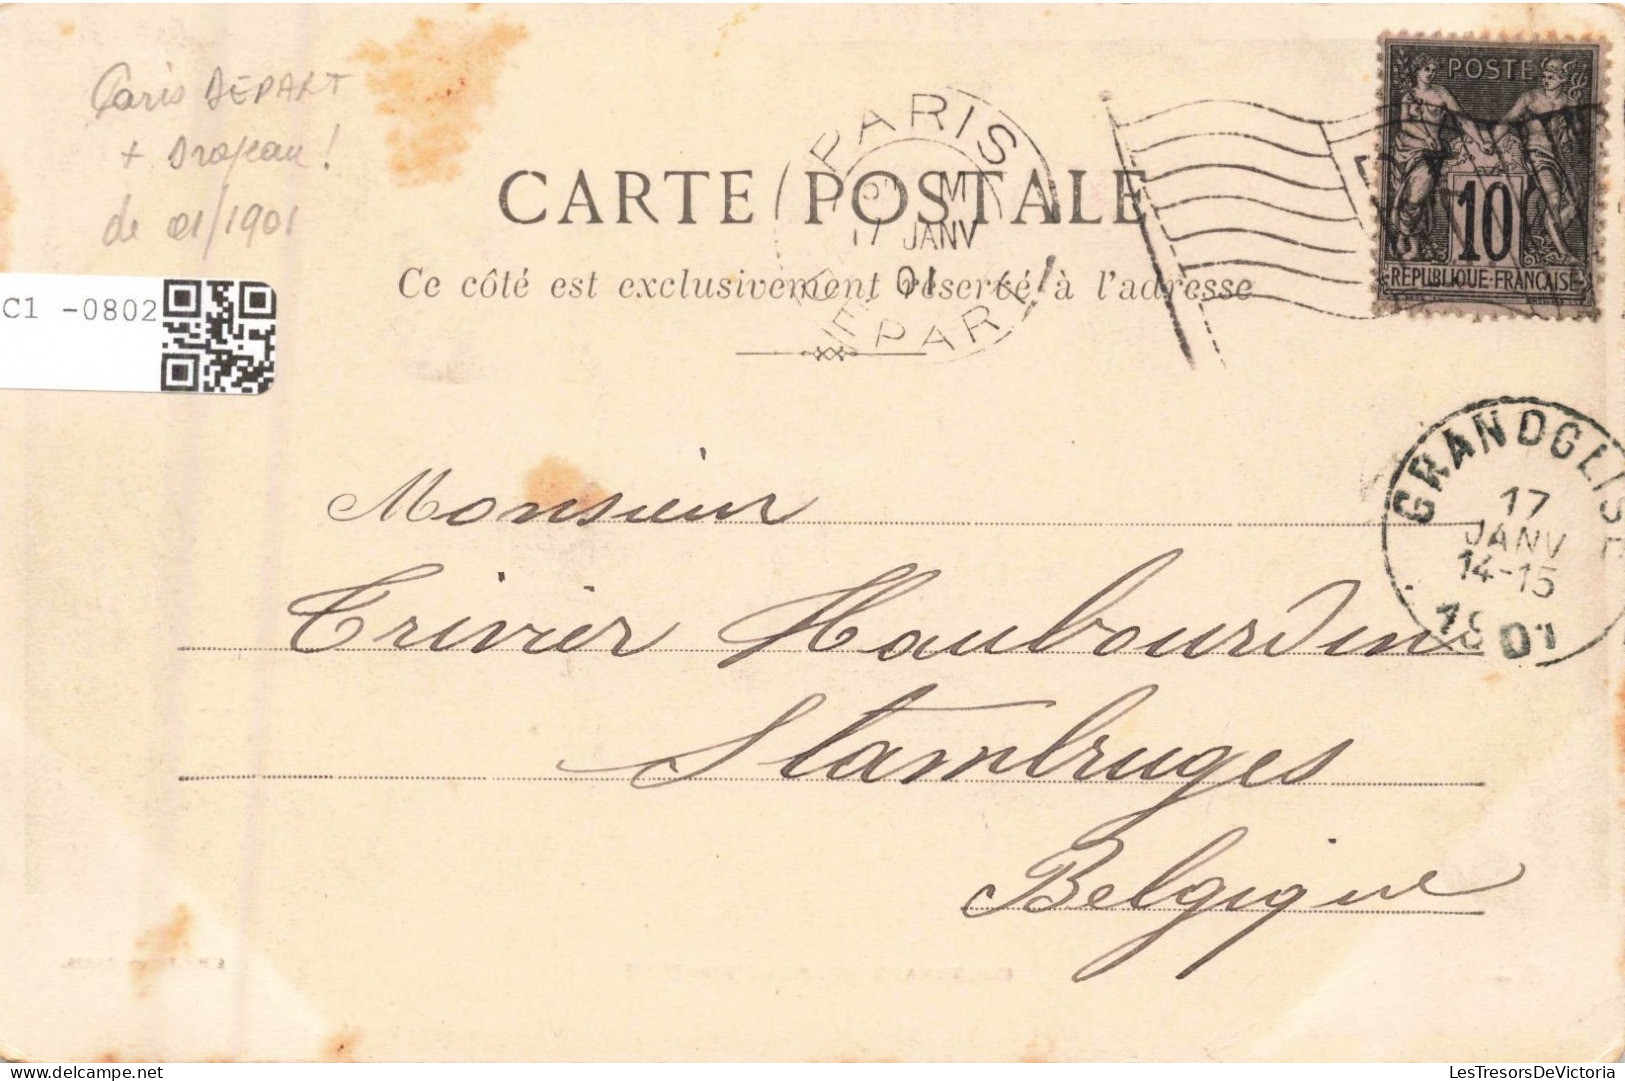 Paris DÉPART
+ Drapeau !
de 01/1901
C1 -0802
PARIS
17 JANV
01
DEPART
POSTE
10
RÉPUBLIQUE-FRANÇAISE
CARTE POSTALE
Ce côté est exclusivement réservé à l'adresse
GRANDGLISE
17
JANV
14-15
1901
Monsieur
Trivier Haubourdin
Stambruges
Belgique
LesTresorsDeVictoria.com